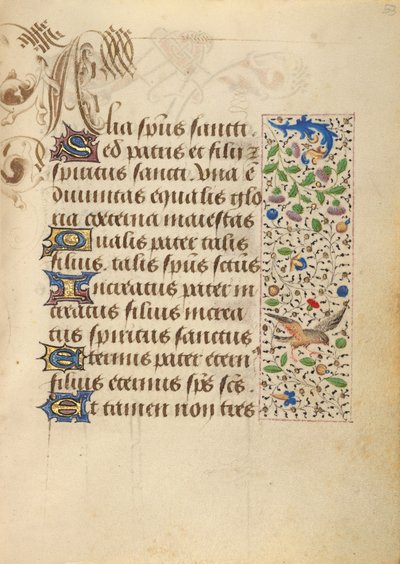 53
Alia sp̄us sancti.
Sed patris et filii z
spiritus sancti. Vna ē
diuinitas equalis glo
ria coeterna maiestas
Qualis pater talis
filius. talis sp̄us sc̄tus
Increatus pater in
creatus filius increa
tus spiritus sanctus
Eternus pater etern
filius eternus sp̄s sc̄s
Et tamen non tres